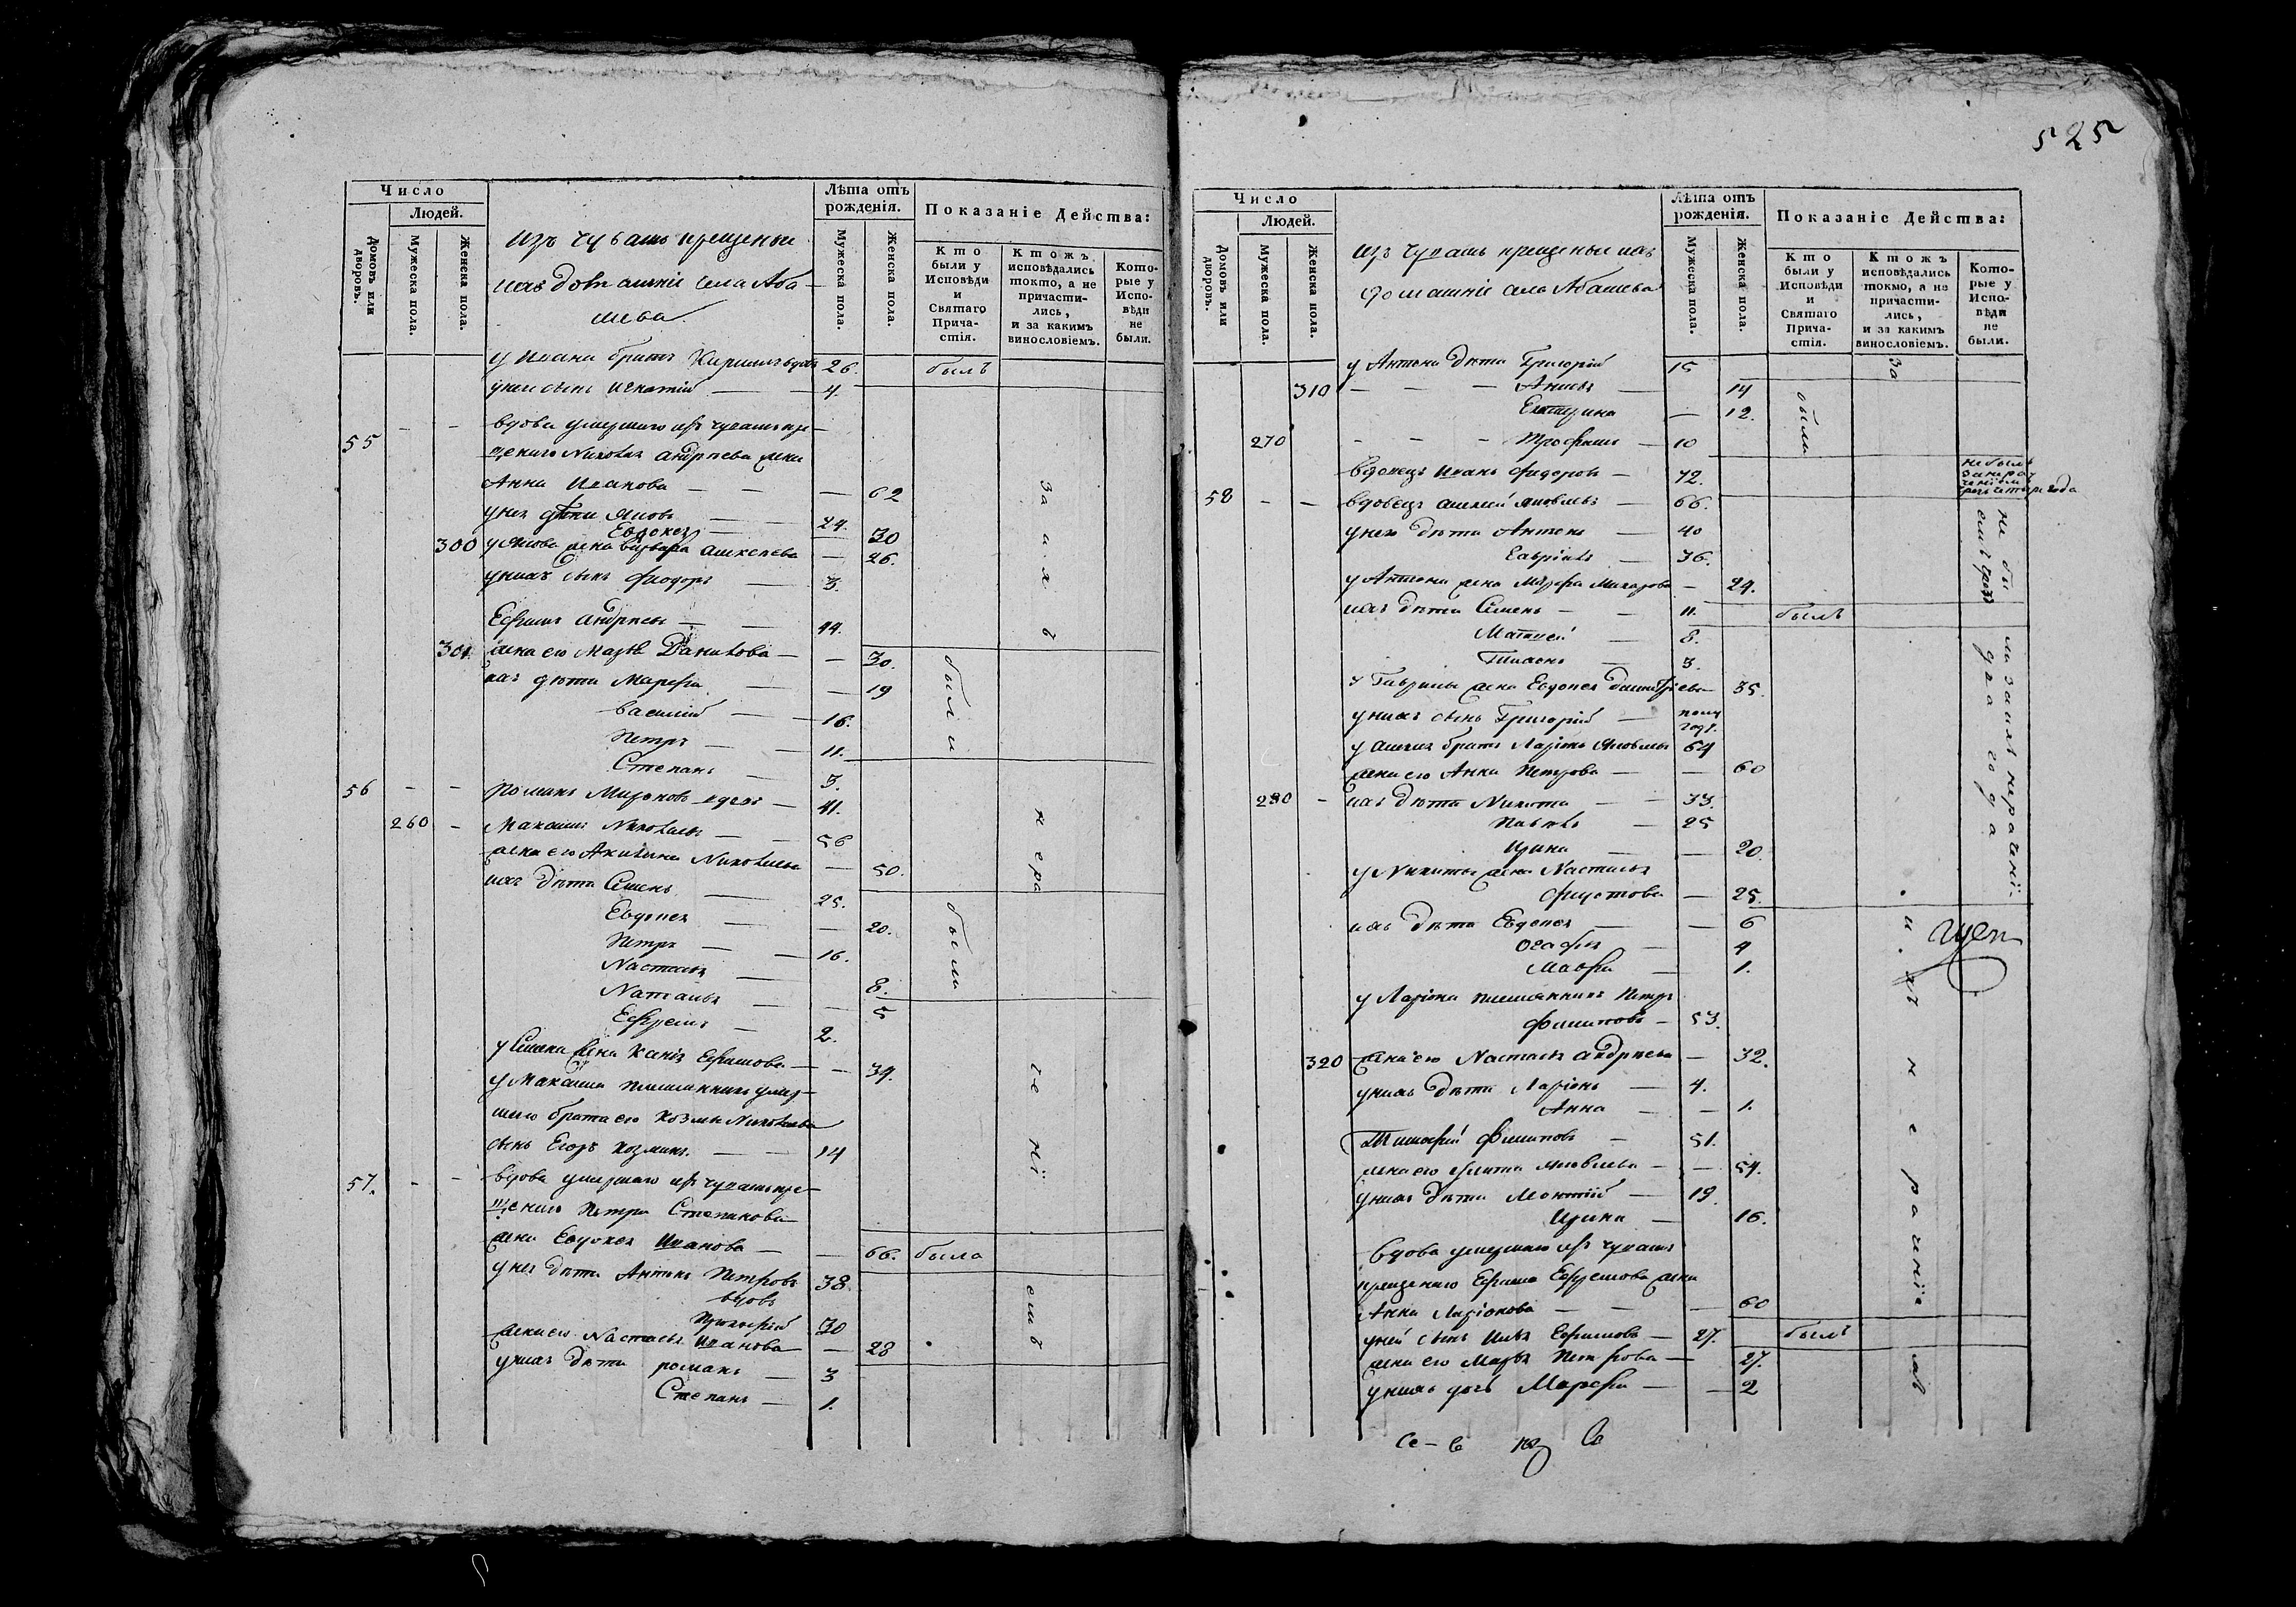 525
Число
Людей.
Домовъ или дворовъ.
Мужеска пола.
Женска пола.
Изъ чувашъ крещеные
ихъ домашніе села Аба-
шева.
Лѣта отъ рожденія.
Мужеска пола.
Женска пола.
Показаніе Дѣйства:
Кто были у Исповѣди и Святаго Причастія.
Ктожъ исповѣдались токмо, а не причастились, и за какимъ винословіемъ.
Которые у Исповѣди не были.
у Ивана братъ 26. былъ
у него сынъ Игнатій 4.
55 - - вдова умершаго изъ чувашъ кре-
щенаго Николая Андреева жена
Анна Иванова 62
у нея дѣти Яковъ 24.
Евдокея 30
300 у Якова жена Варвара Алексеева 26.
у нихъ сынъ Феодоръ 3.
Ефимъ Андреевъ 44.
301 жена его Марья Данилова 30.
ихъ дѣти Марфа 19
Василій 16.
Петръ 11.
Степанъ 5.
были
56 - - Романъ Мироновъ вдовъ 41.
260 - Максимъ Николаевъ 56
жена его Акилина Николаева 50.
ихъ дѣти Семенъ 25.
Евдокея 20.
Петръ 16.
Настасья 8.
Наталья 5
Ефремъ 2.
были
у Семена жена Ефимова 34.
у Максима племянникъ умер-
шаго брата его Козмы Николаева
сынъ Егоръ Козминъ 14
57. - - вдова умершаго изъ чувашъ кре-
щенаго Петра Степанова
жена Евдокея Иванова 66. была
у нея дѣти Антонъ Петровъ 38.
вдовъ
30
жена его Настасья Иванова 28
у нихъ дѣти Романъ 3
Степанъ 1.
за ихъ нераченіемъ
Число
Людей.
Домовъ или дворовъ.
Мужеска пола.
Женска пола.
Изъ чувашъ крещеные ихъ
домашніе села Абашева
Лѣта отъ рожденія.
Мужеска пола.
Женска пола.
Показаніе Дѣйства:
Кто были у Исповѣди и Святаго Причастія.
Ктожъ исповѣдались токмо, а не причастились, и за какимъ винословіемъ.
Которые у Исповѣди не были.
у Антона дѣти Григорій 15
310 - - - Анна 14
Екатерина 12.
270 - - - Трофимъ 10
были
вдовецъ Иванъ Федоровъ 72.
не былъ за нераченіемъ года
58 - - вдовецъ Алексей Яковлевъ 66.
у него дѣти Антонъ 40
Гаврилъ 36.
у Антона жена Марфа Макарова 24.
ихъ дѣти Семенъ 11. былъ
Матвей 8.
Тимонъ 3.
у Гаврилы жена Евдокея Дмитріева 35.
у нихъ сынъ Григорій полу год.
у Алексея братъ Ларіонъ Яковлевъ 64
жена его Анна Петрова 60
280 - ихъ дѣти Никита 33.
Павелъ 25
Ирина 20.
у Никиты жена Настасья
25.
ихъ дѣти Евдокея 6
Агафья 4
Мавра 1.
у Ларіона племянникъ Петръ
Филиповъ 53.
320 жена его Настасья Андреева 32.
у нихъ дѣти Ларіонъ 4.
Анна 1.
Тимофей Филиповъ 51.
жена его Яковлева 54.
у нихъ дѣти Леонтій 19
Ирина 16.
вдова умершаго изъ чувашъ
крещенаго Ефима Ефремова жена
Анна Ларіонова 60
у ней сынъ Илья Ефимовъ 27. былъ
жена его Марья Петрова 27.
у нихъ дочь Марфа 2
за ихъ нераченіемъ
не были за ихъ нераченіемъ чрезъ два года